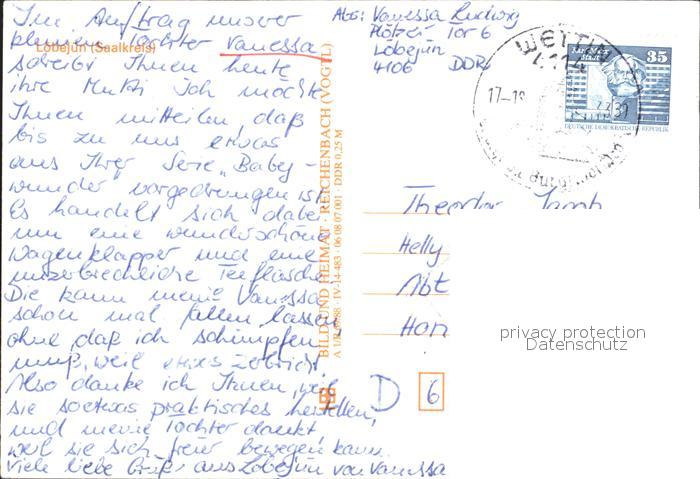 Im Auftrag unserer
kleinen Tochter Vanessa
schreibt Ihnen heute
ihre Mutti Ich möchte
Ihnen mitteilen daß
bis zu uns etwas
aus Ihrer Serie „Baby-
wunder" vorgedrungen ist.
Es handelt sich dabei
um eine wunderschöne
Wagenklapper und eine
unzerbrechliche Teeflasche
Die kann meine Vanessa
schon mal fallen lassen,
ohne daß ich schimpfen
muß, weil etwas zerbricht
Also danke ich Ihnen, weil
sie soetwas praktisches herstellen,
und meine Tochter dankt,
weil sie sich freier bewegen kann.
Viele liebe Grüße aus Löbejün von Vanessa
Löbejün (Saalkreis)
Abs: Vanessa Ludwig
Plötzer Tor 6
Löbejün
4106 DDR
WETTIN
4114
17-18
Karl-Marx-
Stadt
35
DEUTSCHE DEMOKRATISCHE REPUBLIK
BILD UND HEIMAT · REICHENBACH (VOGTL)
IV-14-483 · 06 08 07 001 · DDR 0,25 M
Theodor
Helly
Abt
Han
D 6
privacy protection
Datenschutz